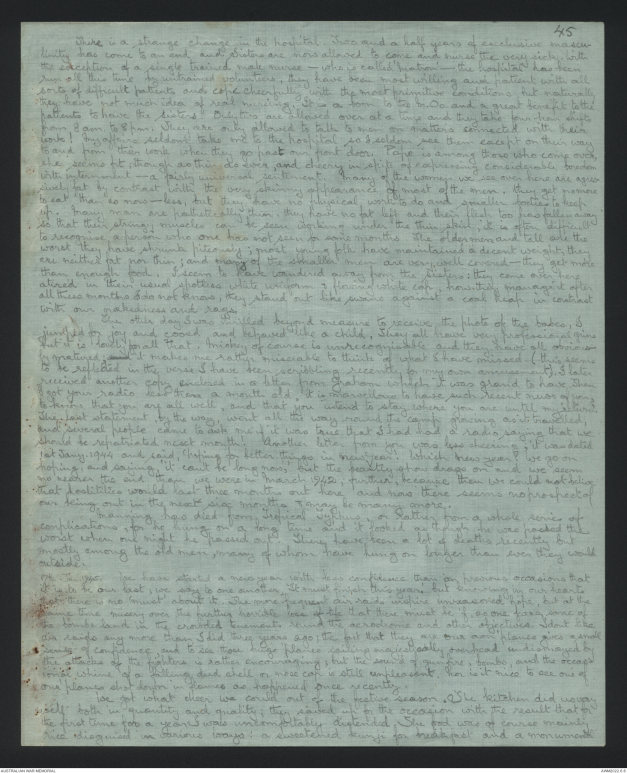 45
There is a strange change in the hospital. Two and a half years of exclusive mascu-
linity has come to an end and Sisters are now allowed to come and nurse the very sick; with
the exception of a single trained male nurse — who is called 'matron' — the hospital has been
run all this time by untrained volunteers; they have been most willing and patient with all
sorts of difficult patients and cope cheerfully with the most primitive conditions but naturally
they have not much idea of real nursing. It is a boon to the M.Os and a great benefit to the
patients to have the sisters. Only two are allowed over at a time and they take four-hour shifts
from 8am to 8pm. They are only allowed to talk to men on matters connected with their
work! My affairs seldom take me to the hospital so I seldom see them except on their way
to and from their work when they go past our front door. is among those who come over,
she seems fit, though as thin as do every and cheery in spite of
with internment — a fairly universal sentiment. Many of the women we see over here are
by contrast with the very skinny appearance of most of the men. They get no more
to eat than us now — less, but they have no physical work to do and smaller bodies to keep
up. Many men are pathetically thin, they have no fat left and their flesh too has fallen away
so that their stringy muscles can be seen working under the thin skin; it is often difficult
to recognise a person who one has not seen for some months. The older men and tall are the
worst they have shrunk piteously; most young folk have maintained a decent weight, they
are neither fat nor thin; and many of the smaller men are very well covered — they get more
than enough food. I seem to have wandered away from the sisters: they come over here
attired in their usual spotless white uniform & flowing white cap, how they manage it after
all these months I do not know, they stand out like swans against a coal heap in contrast
with our nakedness and rags.
The other day I was thrilled beyond measure to receive the photo of the babes, I
jumped for joy and cooed and behaved like a child. They all have very professional grins
but it is lovely for all that. Mickey of course is unrecognisable and they have all obvious-
ly matured; it makes me rather miserable to think of what I have missed (this seems
to be reflected in the verse I have been scribbling recently for my own amusement). I later
received another copy enclosed in a letter from Graham which it was grand to have. Then
I got your radio less than a month old. It is marvellous to have such recent news of you,
to know that you are all well, and that you intend to stay where you are until my return.
The last statement, by the way, went all the way round the camp growing as it travelled,
and several people came to ask me if it was true that I had had a radio saying that we
should be repatriated next month! Another letter from you was less cheering; it was dated
1st Jany. 1944 and said, 'hoping for better things in new year'! Which new year? We go on
hoping, and saying, it can't be long now, but the beastly show drags on and we seem
no nearer the end than we were in March 1942, further, because then we could not believe
that hostilities would last three months out here and now there seems no prospect of
our being out in the next six months & may be many more.
Manning has died from Tropical or rather from a whole series of
complications, for he hung on a long time and it looked as though he was past the
worst when one night he passed out. There have been a lot of deaths recently but
mostly among the old men, many of whom have hung on longer than ever they would
outside.
Jan. 1945. We have started a new year with less confidence than on previous occasions that
it is to be our last; we say to one another, 'It must finish this year', but knowing in our hearts
that there is no must about it. The more frequent air raids inspire unreasoned hope, but at the
same time horror over the further horrible loss of life that there must be if, as one fears, some of
the bombs land in the crowded tenements around the aerodrome and other objectives. I don't like
air raids any more than I did three years ago; the fact that they are our own planes gives a small
sense of confidence, and to see those huge planes sailing majestically overhead undismayed by
the attacks of the fighters is rather encouraging; but the sound of gunfire, bombs, and the occas-
ional whine of a falling dud shell or nose cap is still unpleasant. Nor is it nice to see one of
our planes shot down in flames as happened once recently.
We got what cheer we could out of the festive season. The kitchen did us very
well both in quantity and quality; they saved up for the occasion with the result that for
the first time for a year I was uncomfortably distended. The food was of course mainly
rice disguised in various ways: a sweetened kunji for breakfast and a monument
AUSTRALIAN WAR MEMORIAL